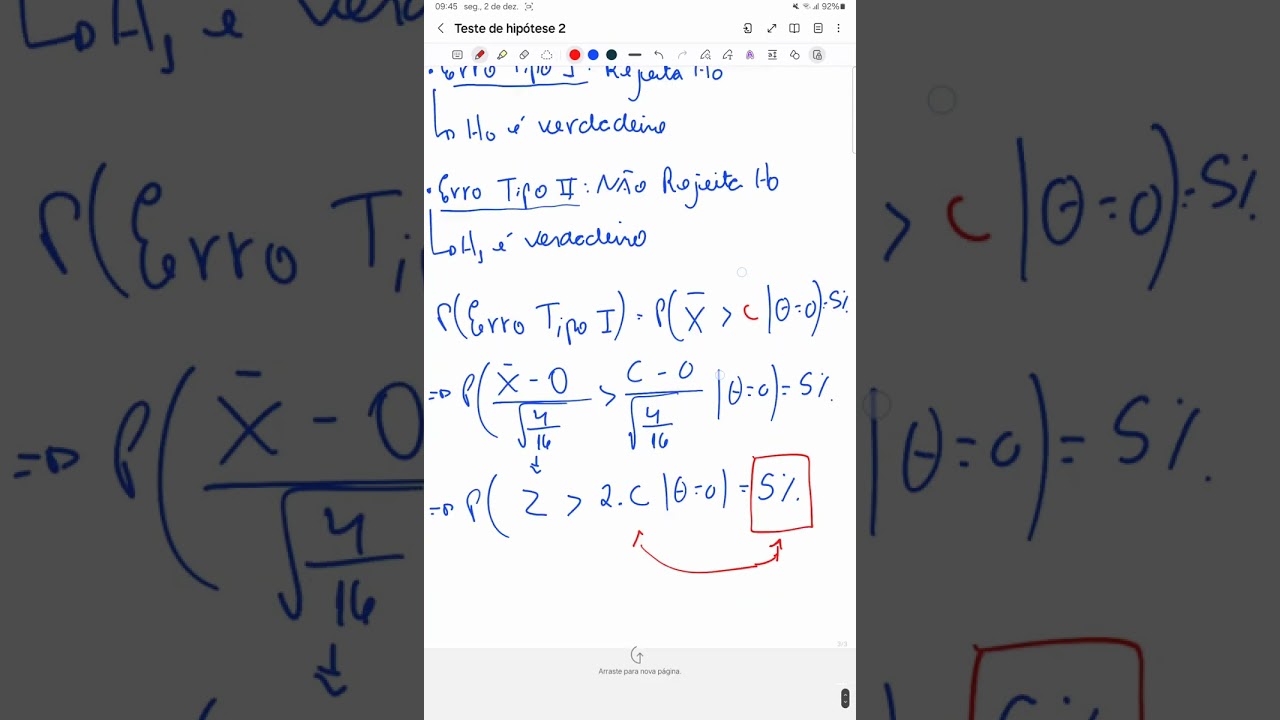 09:45 seg., 2 de dez. 92%
Teste de hipótese 2
• Erro Tipo I: Rejeita Ho
↳ Ho é verdadeiro
• Erro Tipo II: NÃO Rejeita Ho
↳ H1 é verdadeiro
P(Erro Tipo I) = P(X̄ > C | θ=0) = 5%
=> P( (X̄ - 0)/√(4/16) > (C - 0)/√(4/16) | θ=0) = 5%.
=> P( Z > 2.C | θ=0) = 5%.
3/3
Arraste para nova página.